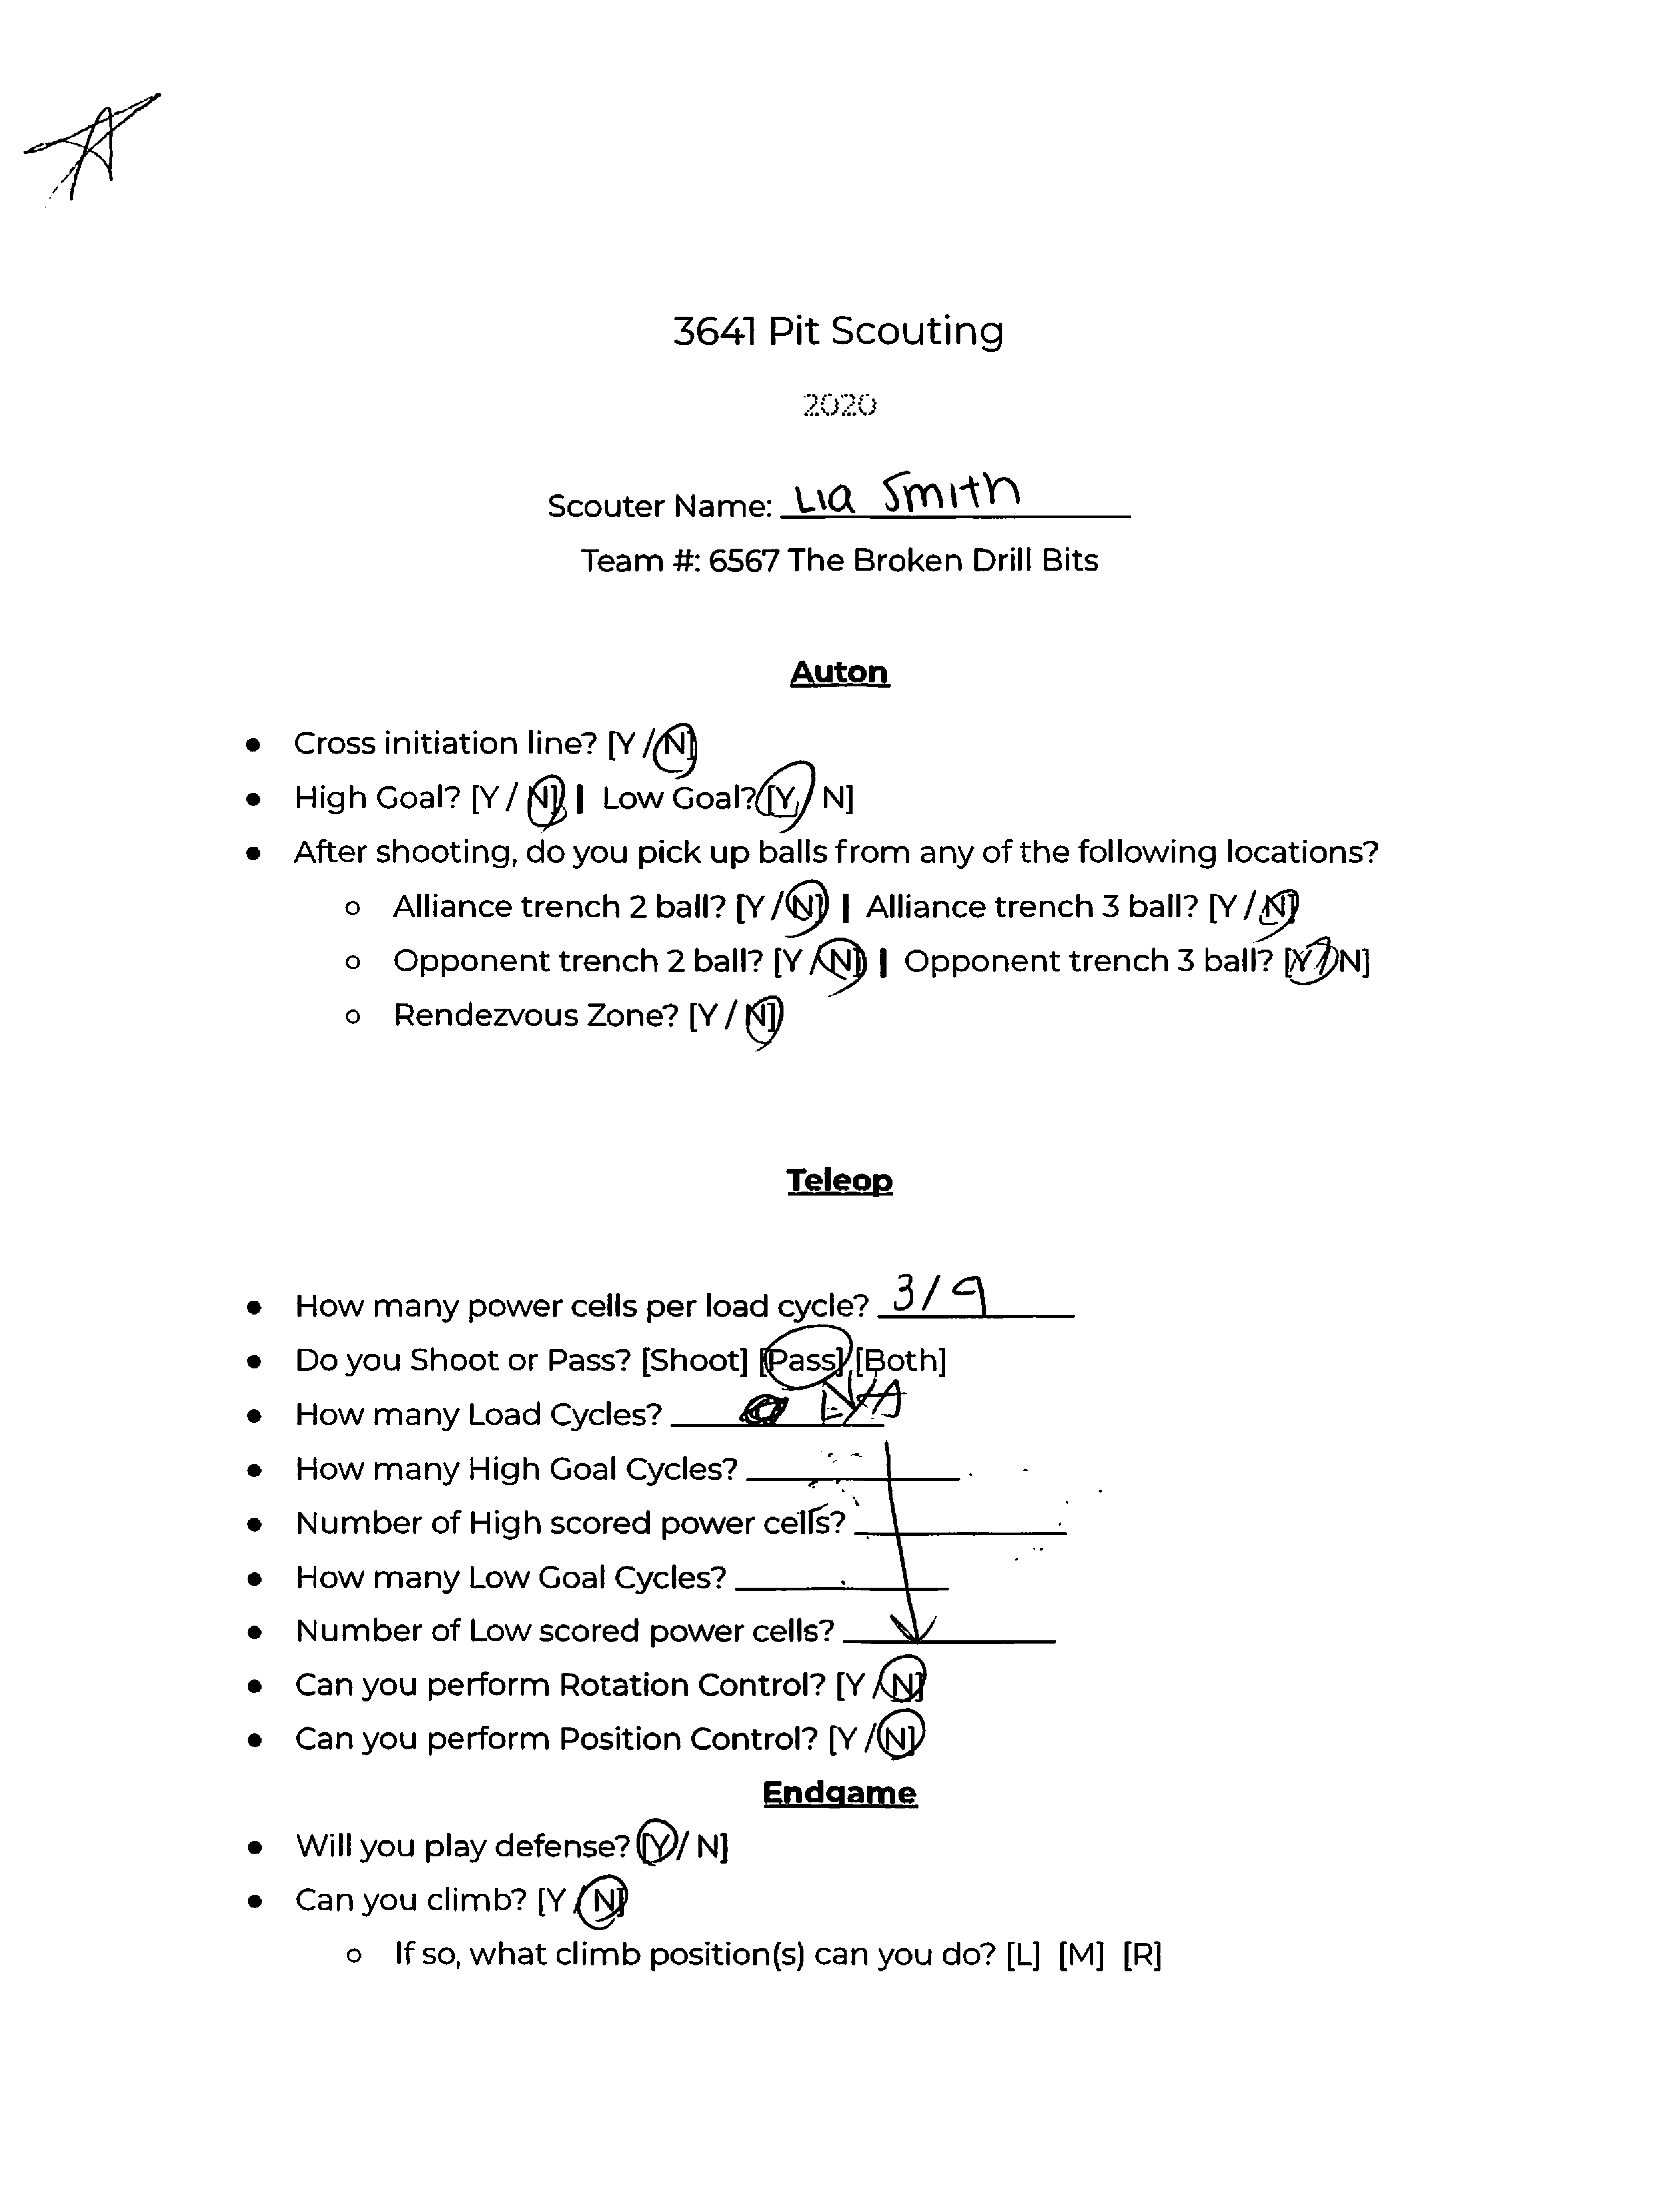 3641 Pit Scouting
2020
Scouter Name: Lia Smith
Team #: 6567 The Broken Drill Bits
Auton
• Cross initiation line? [Y / N]
• High Goal? [Y / N] | Low Goal? [Y / N]
• After shooting, do you pick up balls from any of the following locations?
o Alliance trench 2 ball? [Y / N] | Alliance trench 3 ball? [Y / N]
o Opponent trench 2 ball? [Y / N] | Opponent trench 3 ball? [Y / N]
o Rendezvous Zone? [Y / N]
Teleop
• How many power cells per load cycle? 3/9
• Do you Shoot or Pass? [Shoot] [Pass] [Both]
• How many Load Cycles?
• How many High Goal Cycles?
• Number of High scored power cells?
• How many Low Goal Cycles?
• Number of Low scored power cells?
• Can you perform Rotation Control? [Y / N]
• Can you perform Position Control? [Y / N]
Endgame
• Will you play defense? [Y / N]
• Can you climb? [Y / N]
o If so, what climb position(s) can you do? [L] [M] [R]